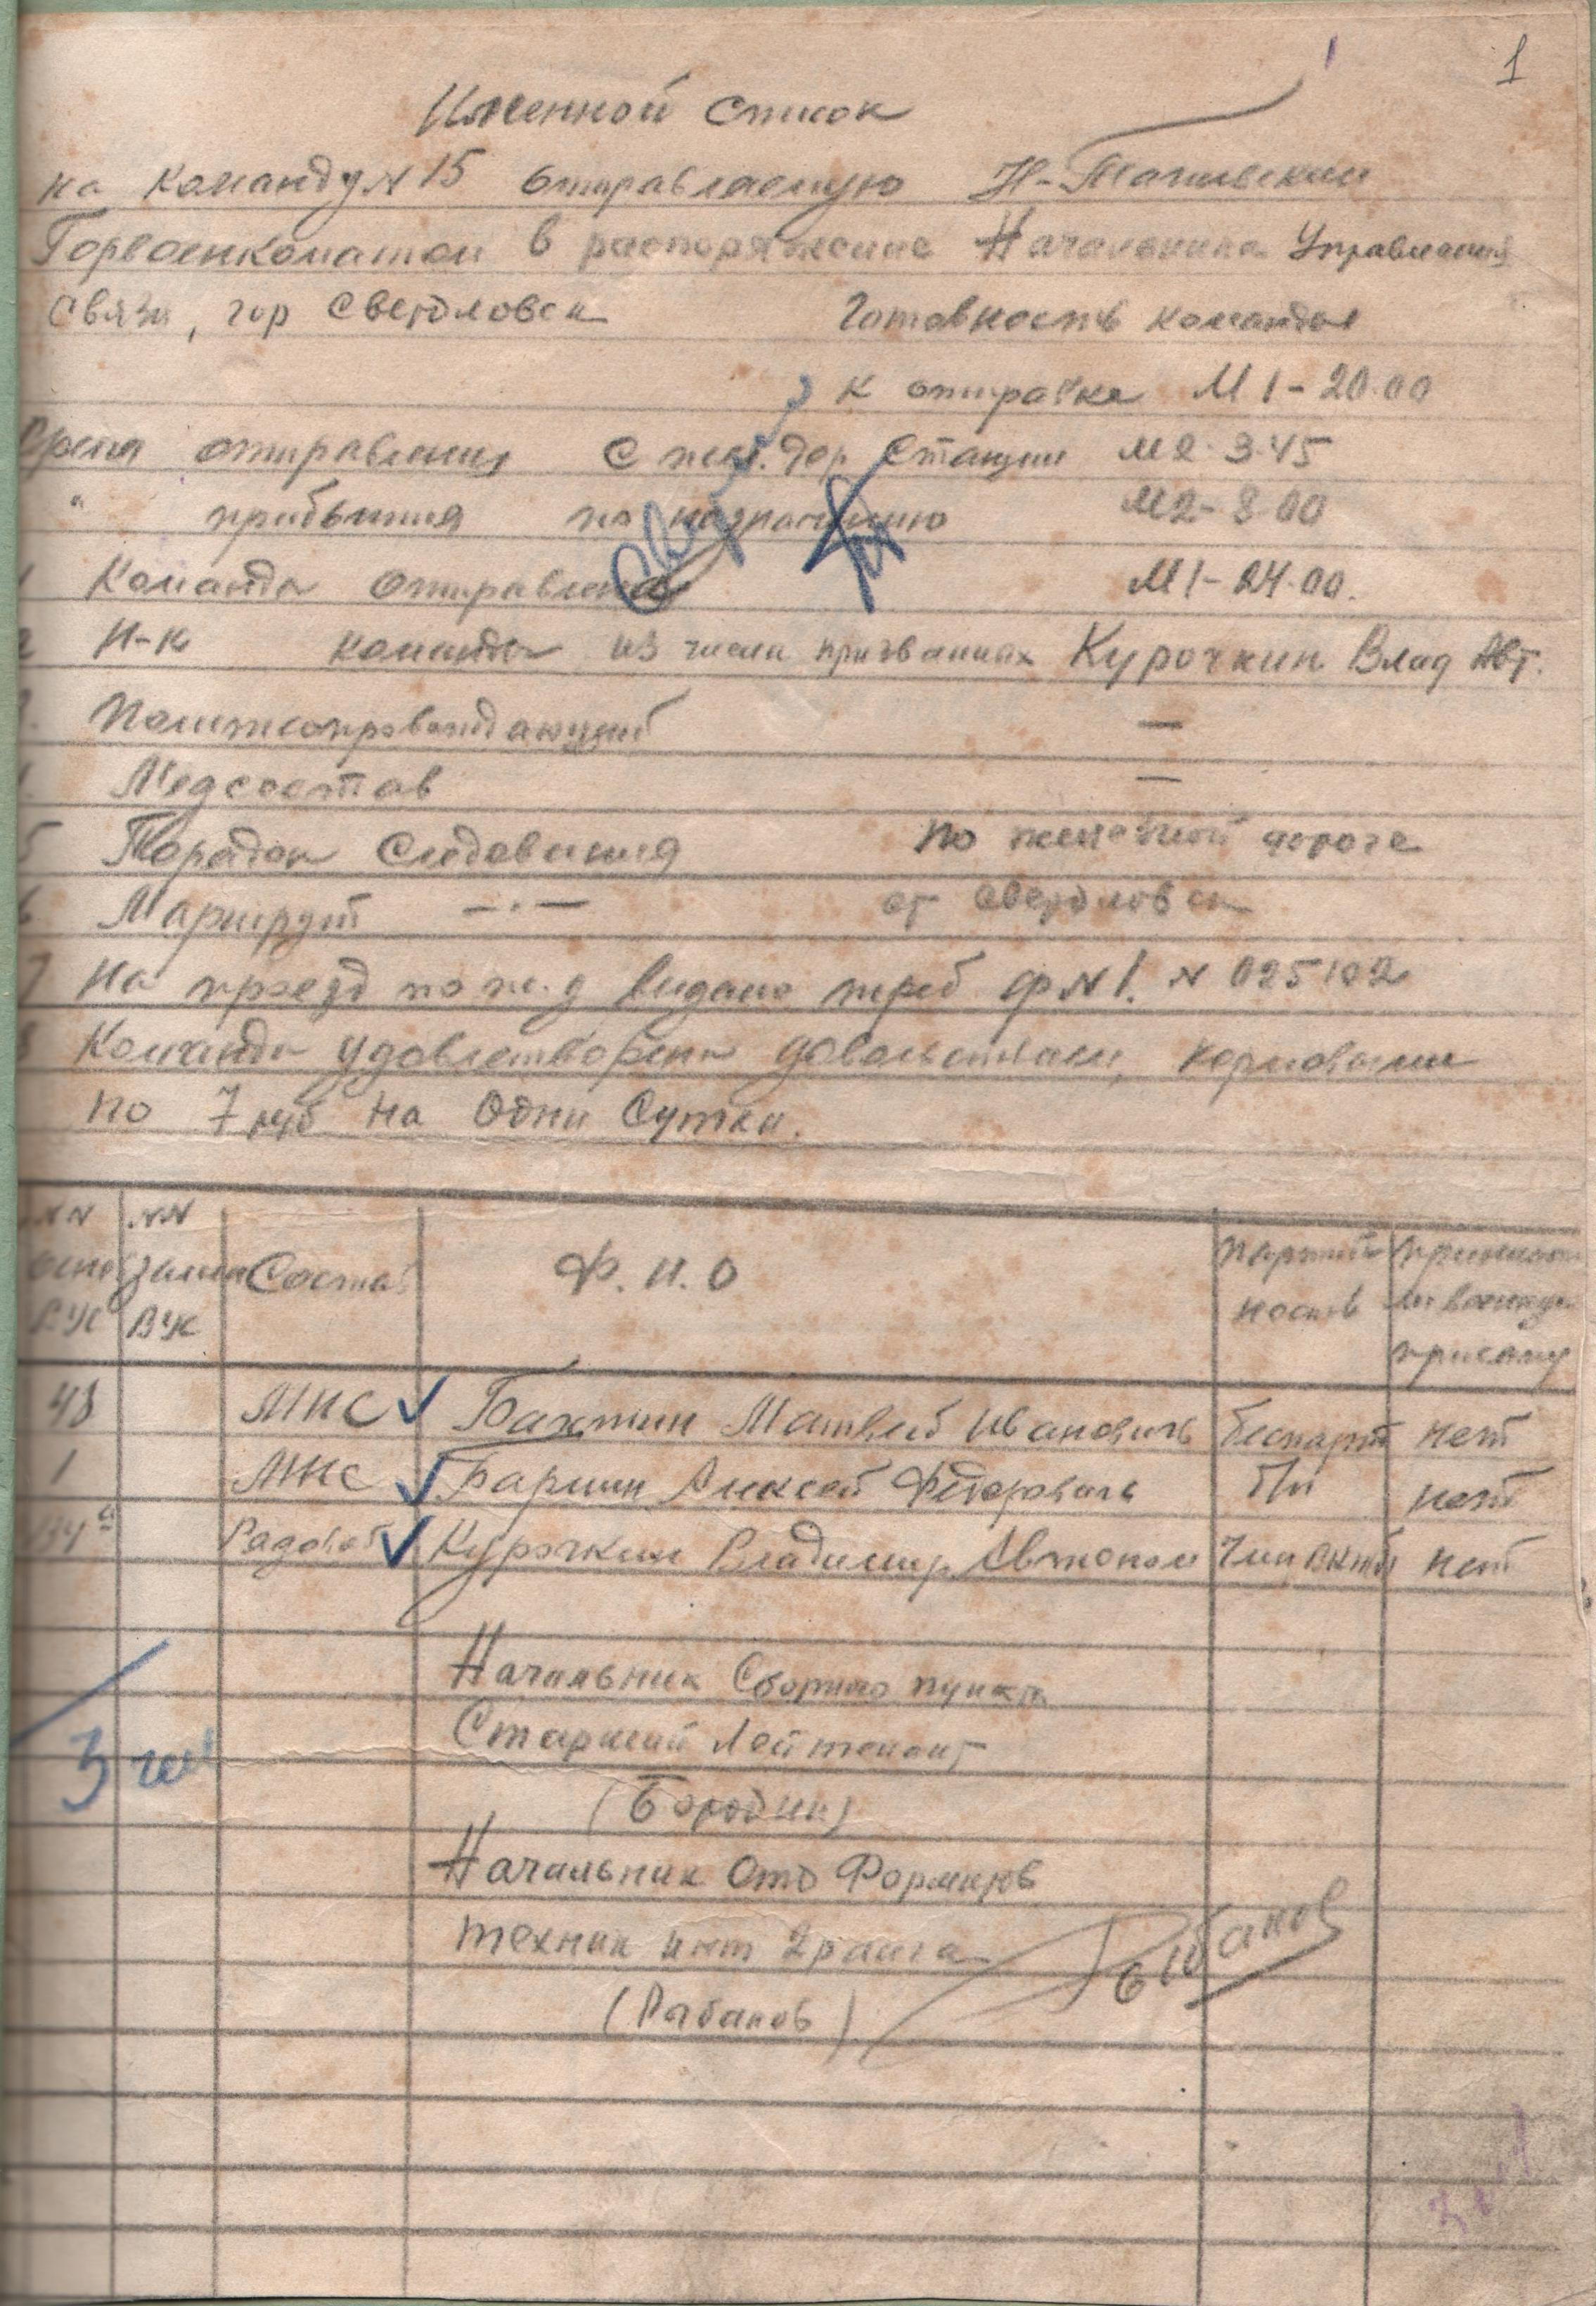 1
Именной список
на команду N 15 отправляемую Н-Тагильским
Горвоенкоматом в распоряжение Начальника Управления
Связи, гор Свердловск Готовность команды
к отправке М 1-20.00
Время отправления с жел. дор Станции М2-3.45
" прибытия по назначению М2-8.00
Команда отправлена М1-24.00.
2 Н-к команды из числа призванных Курочкин Влад Авт.
Политсопровождающий —
Медсостав —
5 Порядок Следования по железной дороге
6 Маршрут —·— ст Свердловск
7 На проезд по ж.д выдано треб ф N 1. N 025102
8 Команда удовлетворена довольствием, кормовыми
по 7 руб на Одни Сутки.
NN NN Состав Ф. И. О Партий ность
ВУС ВУС
48 МНС Бахтин Матвей Иванович беспарт нет
1 МНС Баршин Алексей Фёдорович б/п нет
Рядовой Курочкин Владимир Автоном Член ВКП/б нет
Начальник Сборного пункта
Старший Лейтенант
3 чел
(Бородин)
Начальник Отд Формиров
техник инт 2 ранга Рыбаков
(Рыбаков)